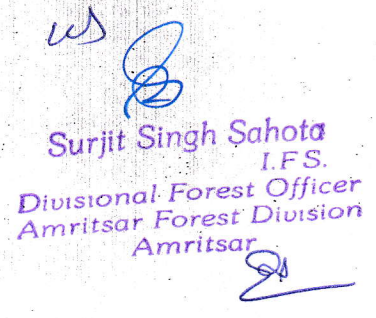 Surjit Singh Sahota
I.F.S.
Divisional Forest Officer
Amritsar Forest Division
Amritsar